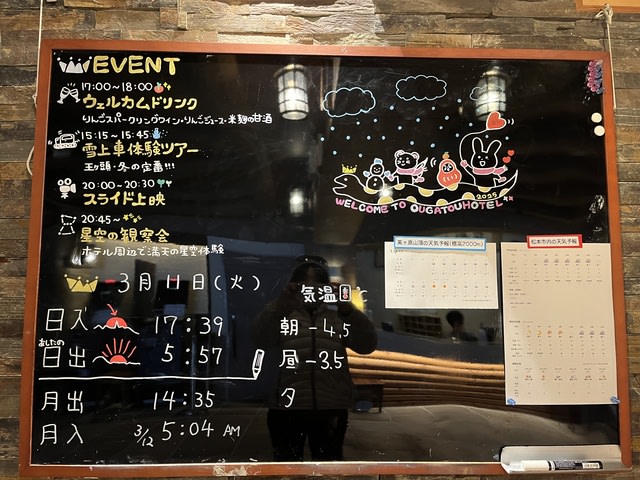 EVENT
17:00~18:00
ウェルカムドリンク
りんごスパークリングワイン・りんごジュース・米麹の甘酒
15:15~15:45
雪上車体験ツアー
王ヶ頭・冬の定番!!!
20:00~20:30
スライド上映
20:45~
星空の観察会
ホテル周辺で満天の星空体験
2025
WELCOME TO OUGATOUHOTEL
美ヶ原山頂の天気予報(標高2000m)
松本市内の天気予報
3月11日(火)
日入 17:39
あしたの
日出 5:57
月出 14:35
月入 3/12 5:04 AM
気温 ℃
朝 -4.5
昼 -3.5
夕